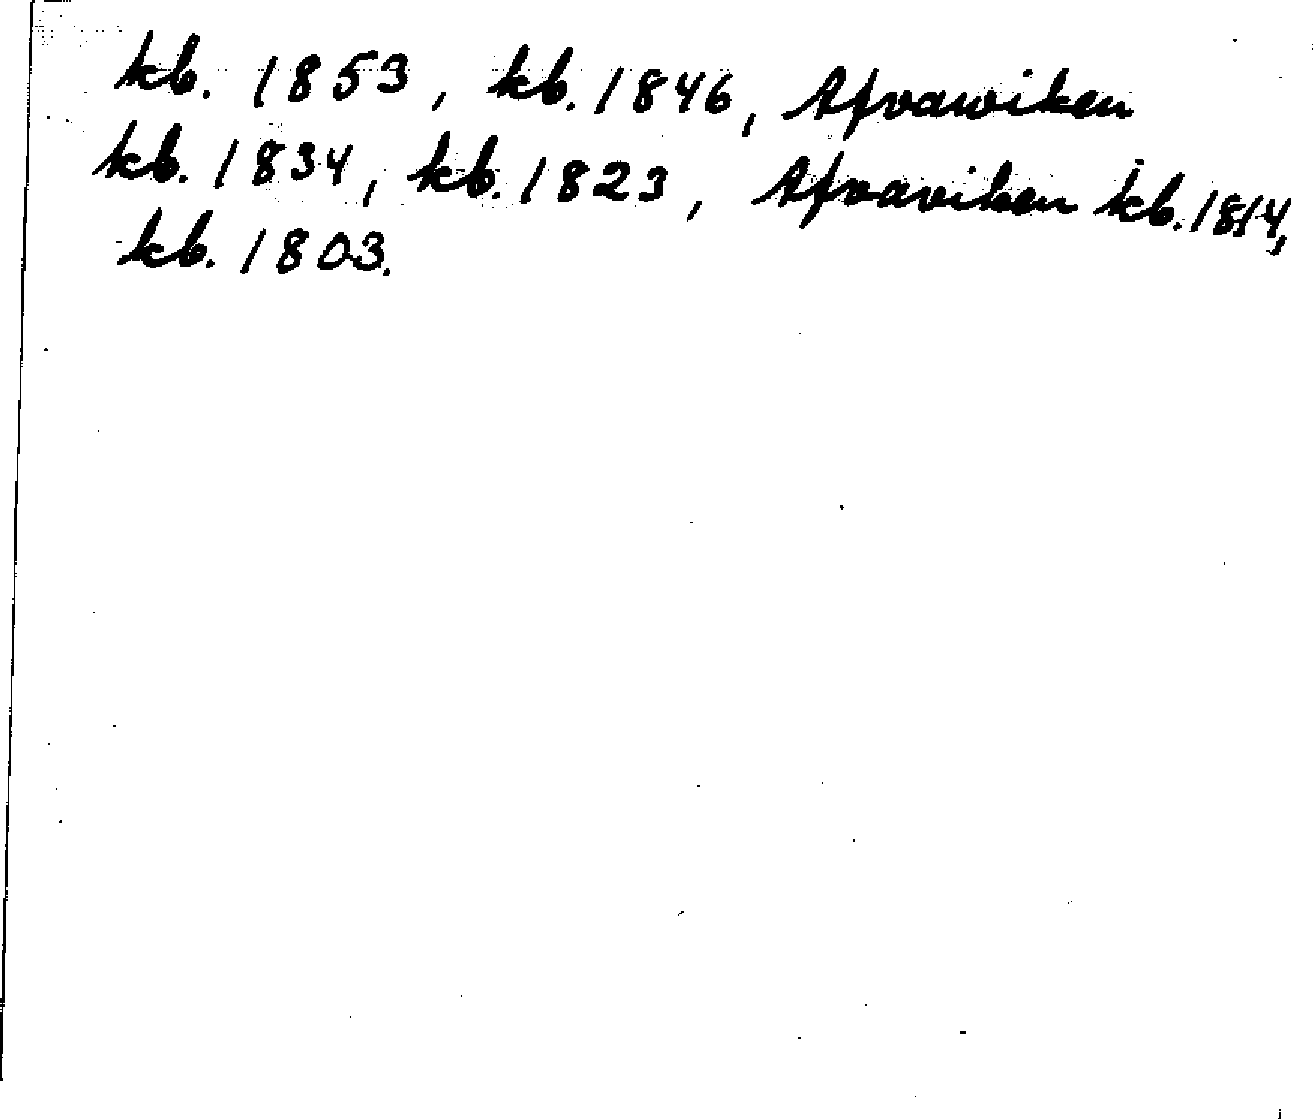 kb. 1853, kb. 1846, Afvawiken
kb. 1834, kb. 1823, Afvaviken kb. 1814,
kb. 1803.